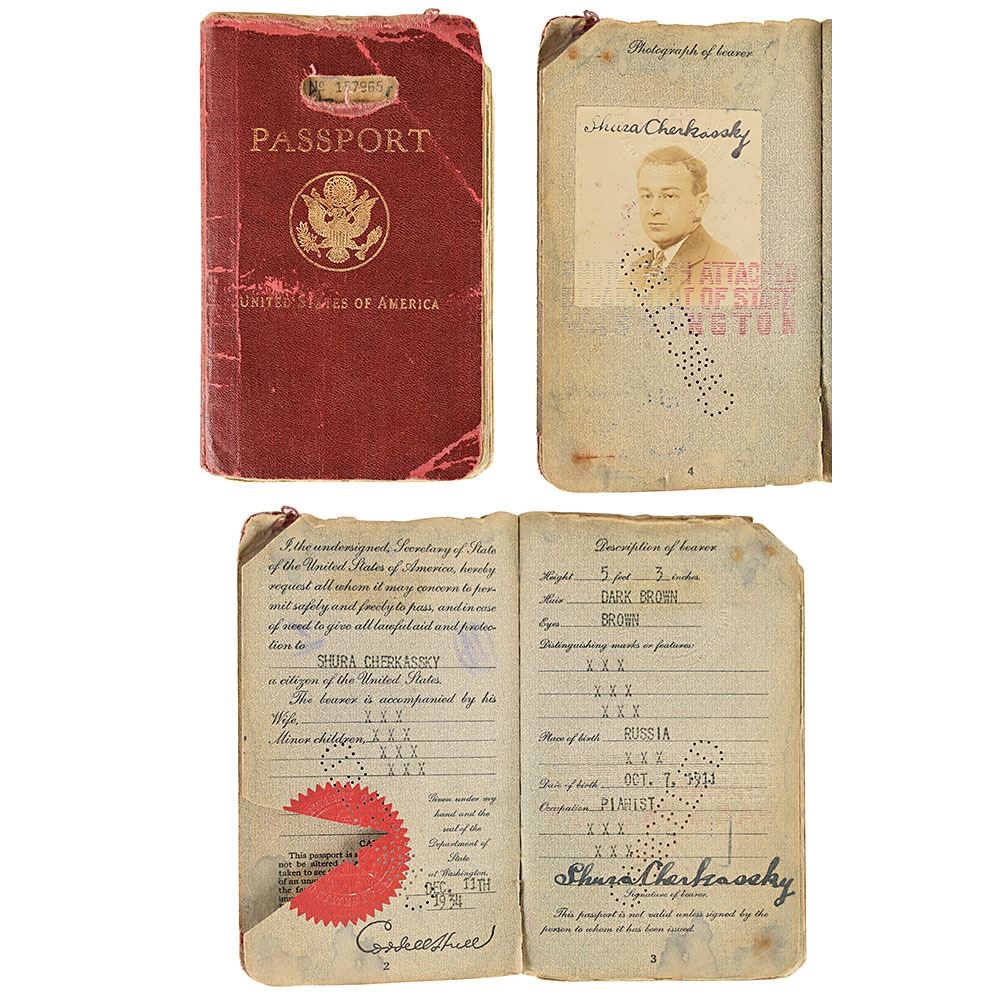 No 157965
PASSPORT
UNITED STATES OF AMERICA
Photograph of bearer
Shura Cherkassky
ATTACHED
T OF STATE
WASHINGTON
4
I, the undersigned, Secretary of State
of the United States of America, hereby
request all whom it may concern to per-
mit safely and freely to pass, and in case
of need to give all lawful aid and protec-
tion to
SHURA CHERKASSKY
a citizen of the United States.
The bearer is accompanied by his
Wife, X X X
Minor children, X X X
X X X
X X X
Given under my
hand and the
seal of the
Department of
State
at Washington,
DEC. 11TH
1934
CA
This passport is
not be altered
taken to see
of an una
the fa
im
Cordell Hull
2
Description of bearer
Height 5 feet 3 inches.
Hair DARK BROWN
Eyes BROWN
Distinguishing marks or features:
X X X
X X X
X X X
Place of birth RUSSIA
X X X
Date of birth OCT. 7, 1911
Occupation PIANIST
X X X
X X X
Shura Cherkassky
Signature of bearer.
This passport is not valid unless signed by the
person to whom it has been issued.
3